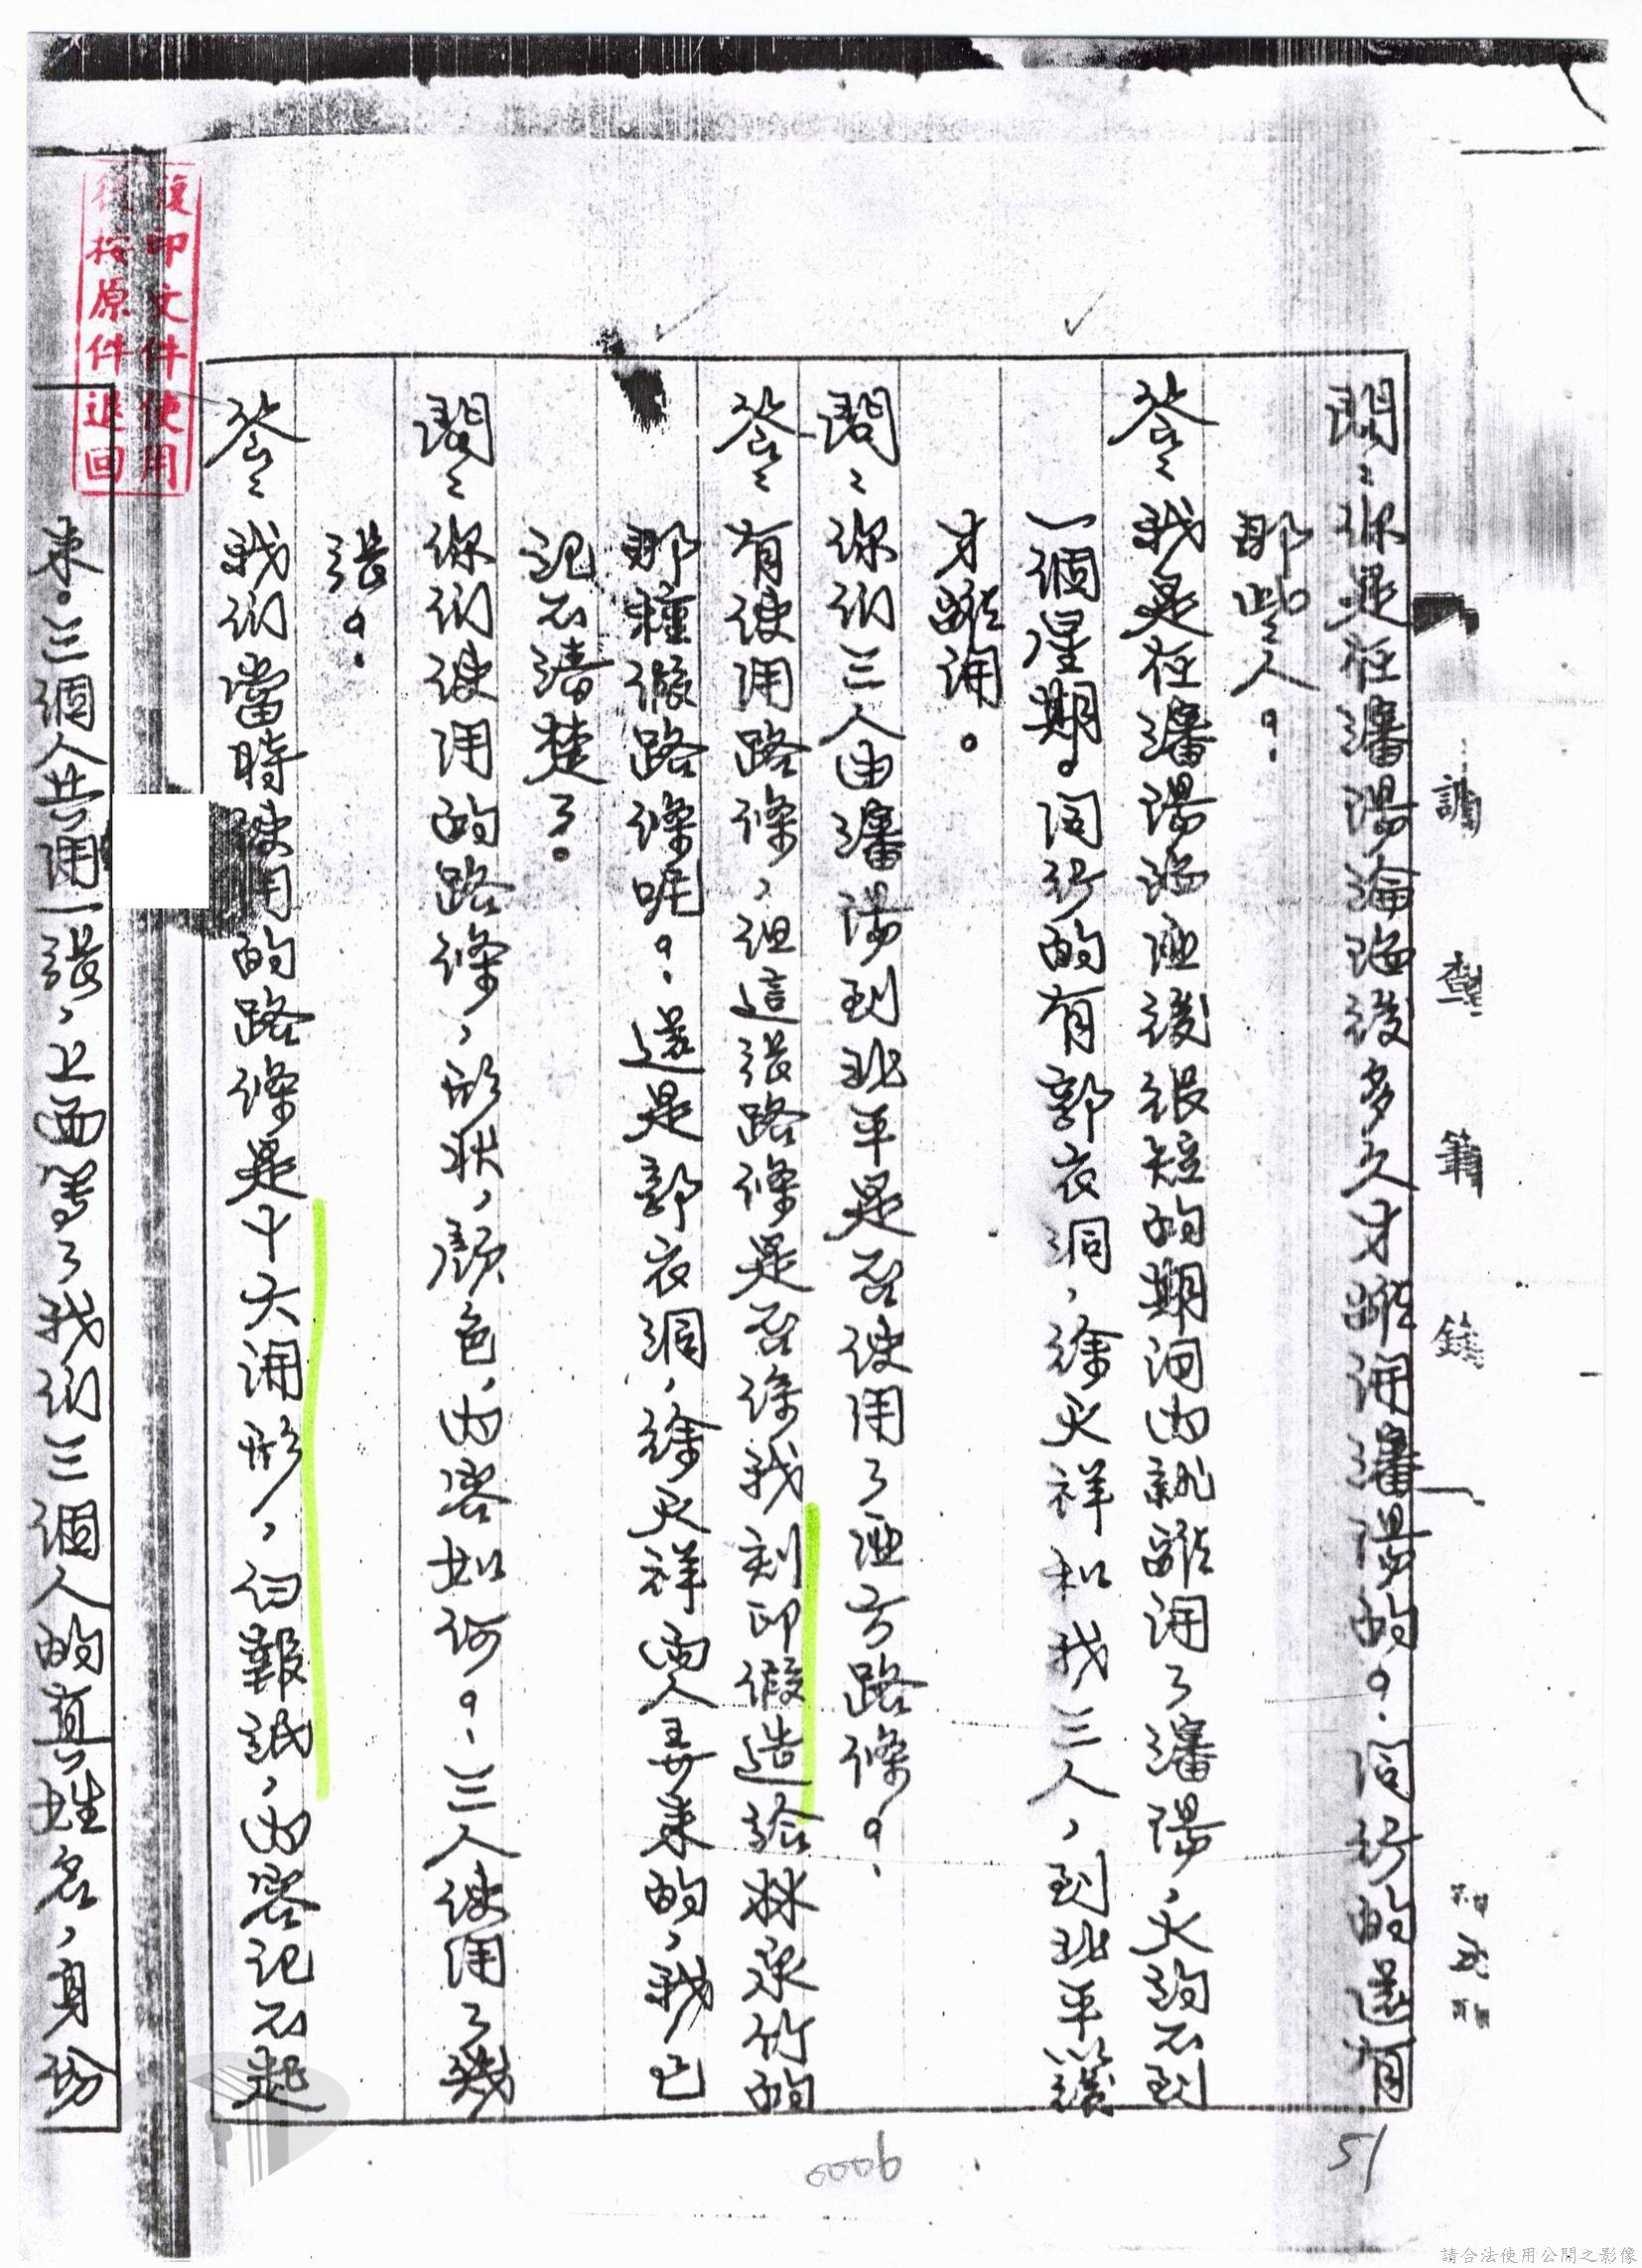 調查筆錄
問：你是在瀋陽淪陷後多久才離開瀋陽的？同行的還有
那些人？
答：我是在瀋陽淪匪後很短的期間內就離開了瀋陽，大約不到
一個星期。同行的有郭衣洞，徐天祥和我三人，到北平後
才離開。
問：你們三人由瀋陽到北平是否使用了匪方路條？
答：有使用路條，但這張路條是否係我刻印假造給林承竹的
那種假路條呢？還是郭衣洞，徐天祥兩人弄來的，我已
記不清楚了。
問：你們使用的路條，形狀，顏色，內容如何？三人使用了幾
張？
答：我們當時使用的路條是十六開形，白報紙，內容記不起
來。三個人共用一張，上面寫了我們三個人的真姓名，身份
復印文件使用
後按原件退回
51
9000
請合法使用公開之影像